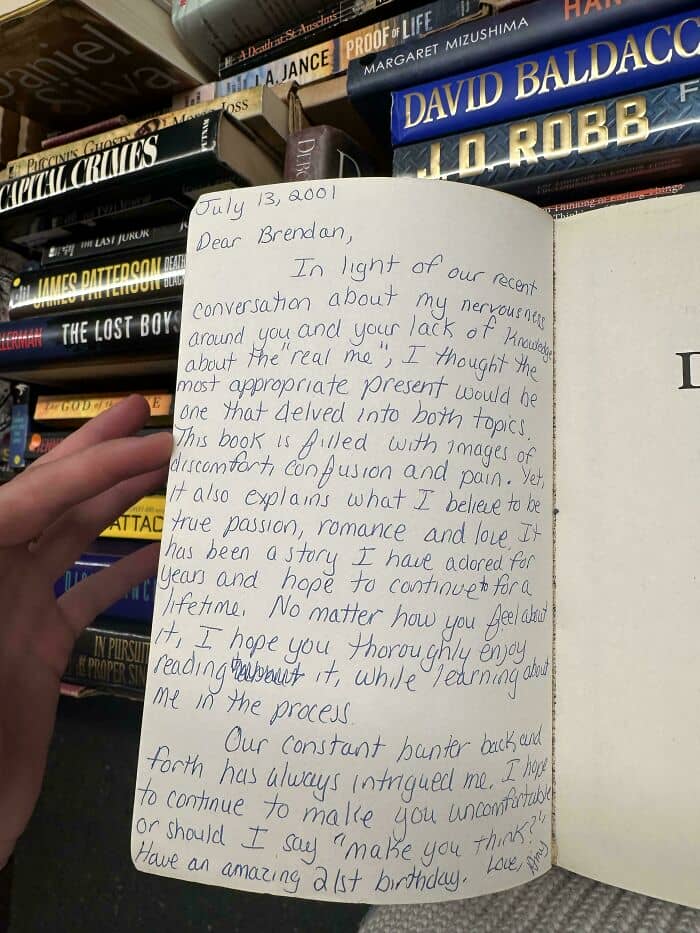 Daniel
Silva
A Death at St. Anselm's
J.A. JANCE PROOF of LIFE
MARGARET MIZUSHIMA
HAN
DAVID BALDACC
J.D. ROBB
PUCCINI'S GHOSTS
Joss
CAPITAL CRIMES
THE LAST JUROR
JAMES PATTERSON
LLERMAN THE LOST BOYS
The GOD of the
ATTAC
IN PURSUIT
of the PROPER SIN
D
July 13, 2001
Dear Brendan,
In light of our recent
conversation about my nervousness
around you and your lack of knowledge
about the "real me", I thought the
most appropriate present would be
one that delved into both topics.
This book is filled with images of
discomfort, confusion and pain. Yet,
it also explains what I believe to be
true passion, romance and love. It
has been a story I have adored for
years and hope to continue to for a
lifetime. No matter how you feel about
it, I hope you thoroughly enjoy
reading it, while learning about
me in the process.
Our constant banter back and
forth has always intrigued me. I hope
to continue to make you uncomfortable
or should I say "make you think?"
Have an amazing 21st birthday. Love, Amy